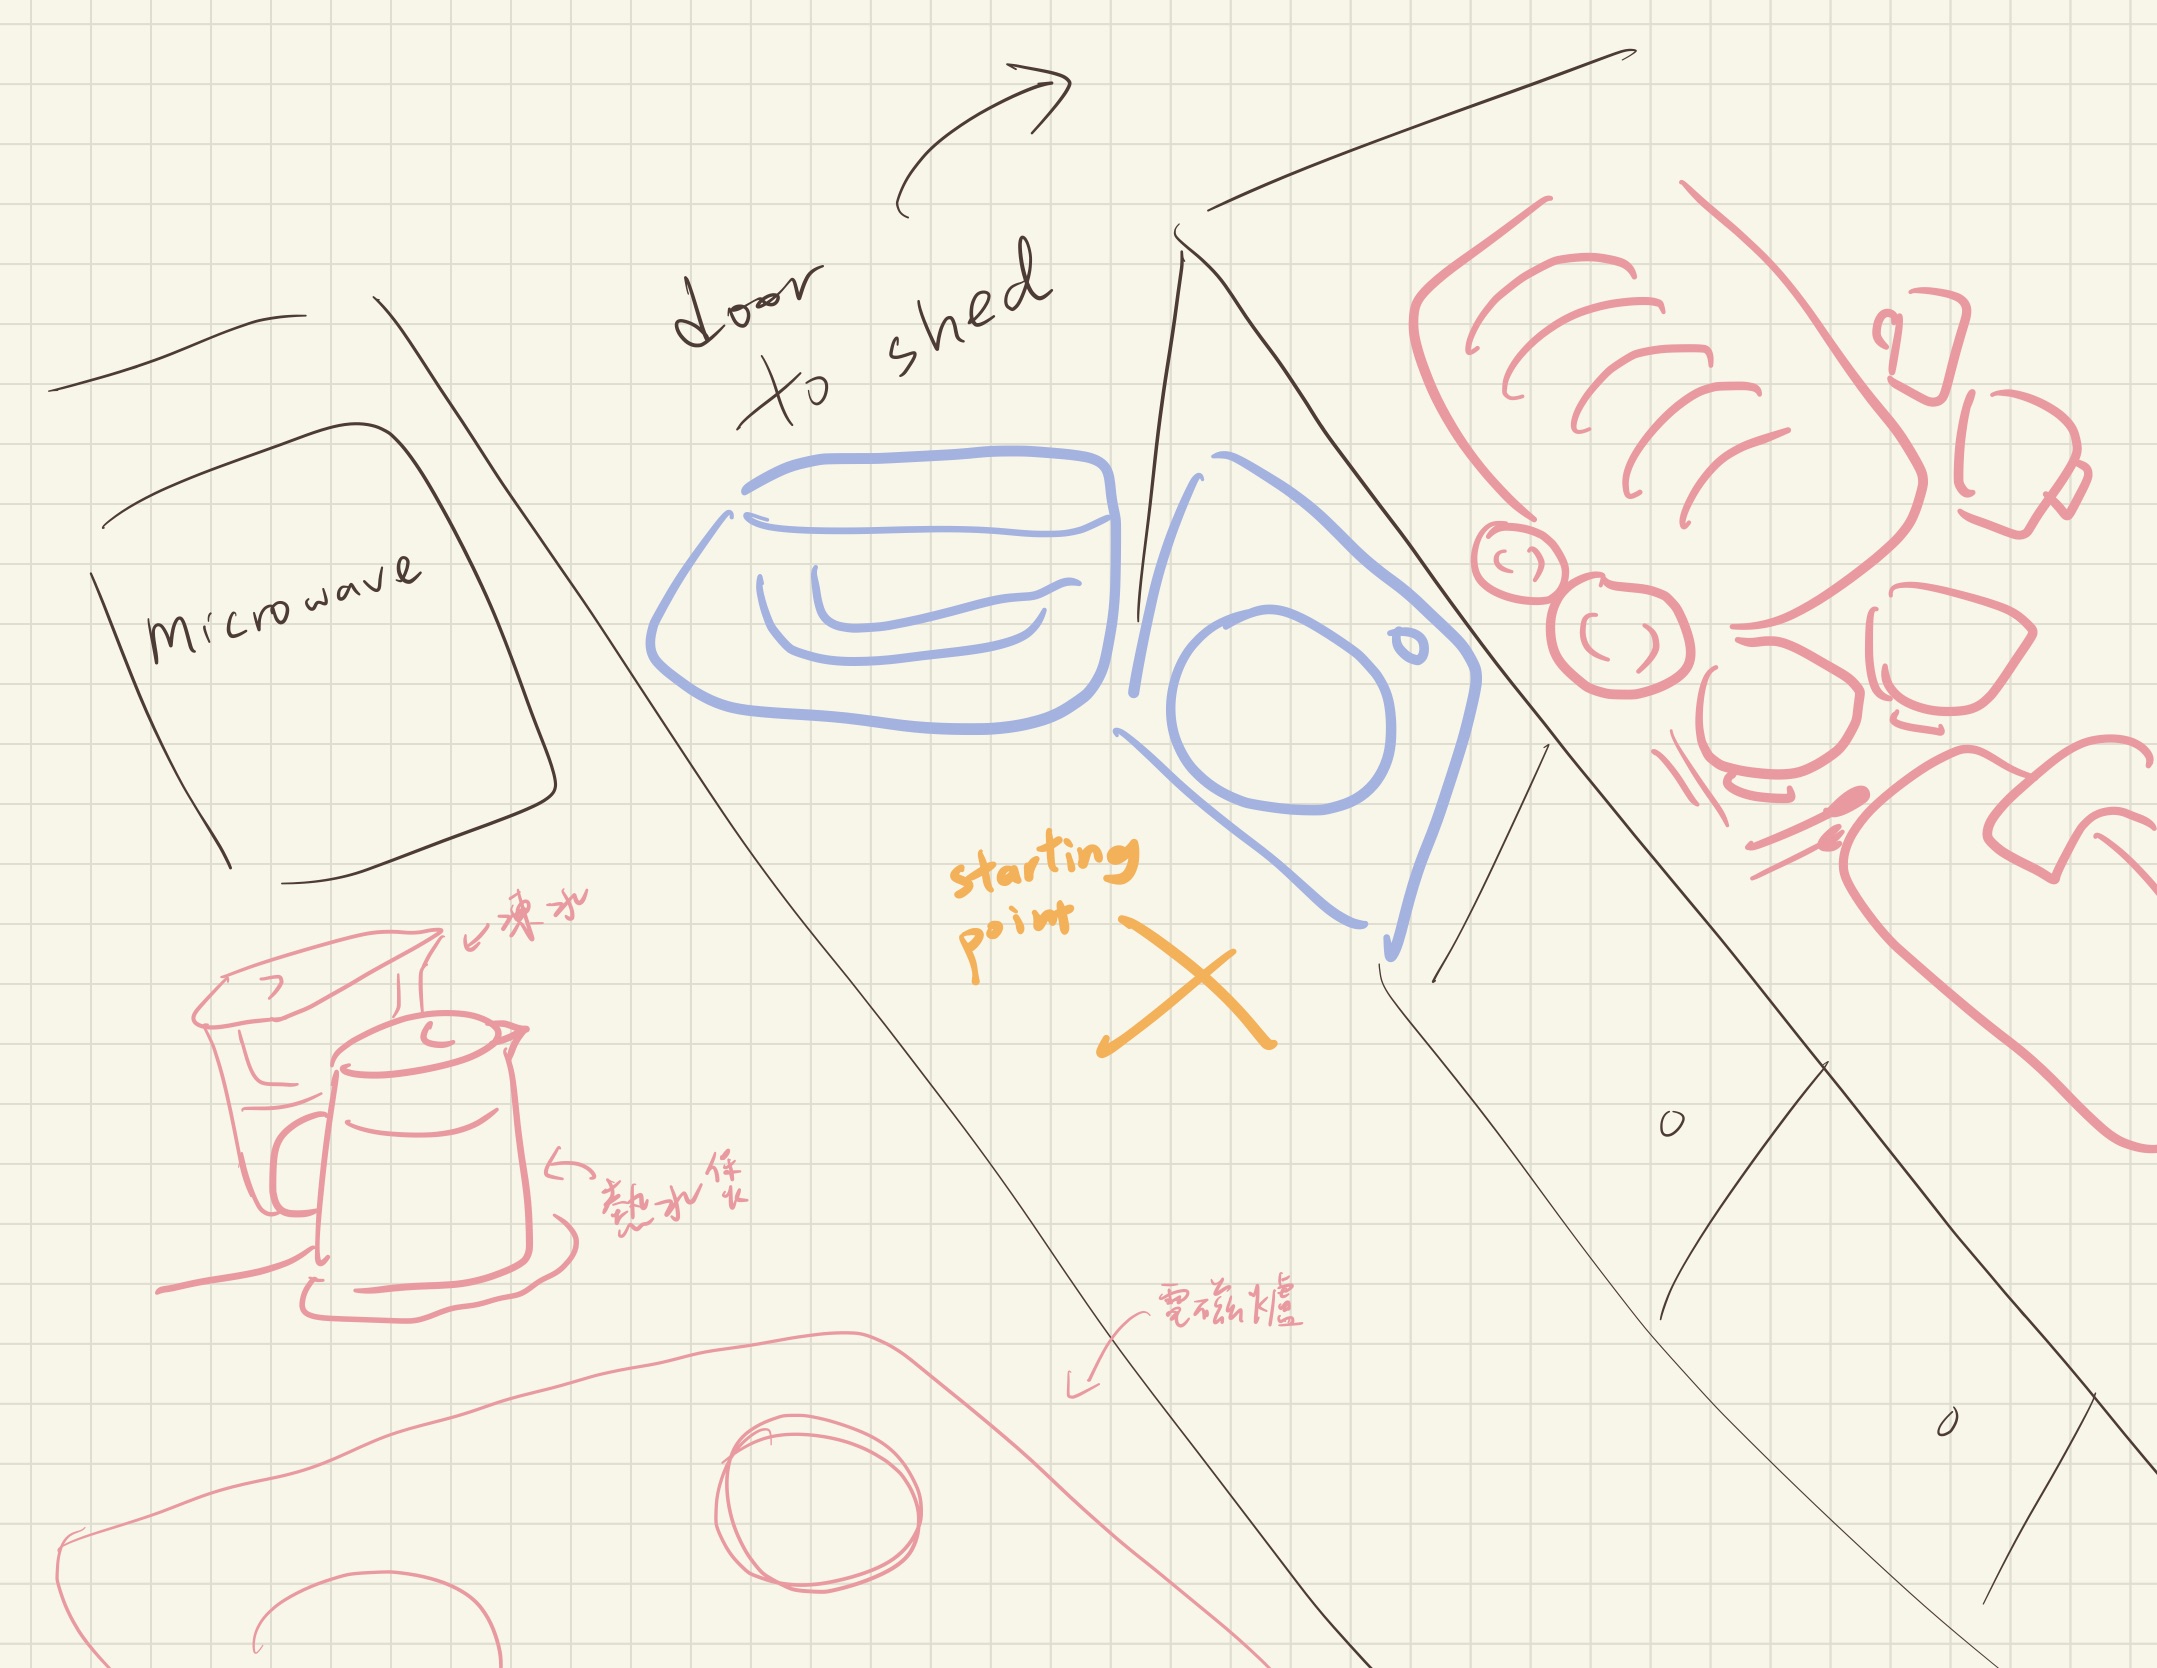 door
to shed
microwave
starting
point
濾水
熱水煲
電磁爐